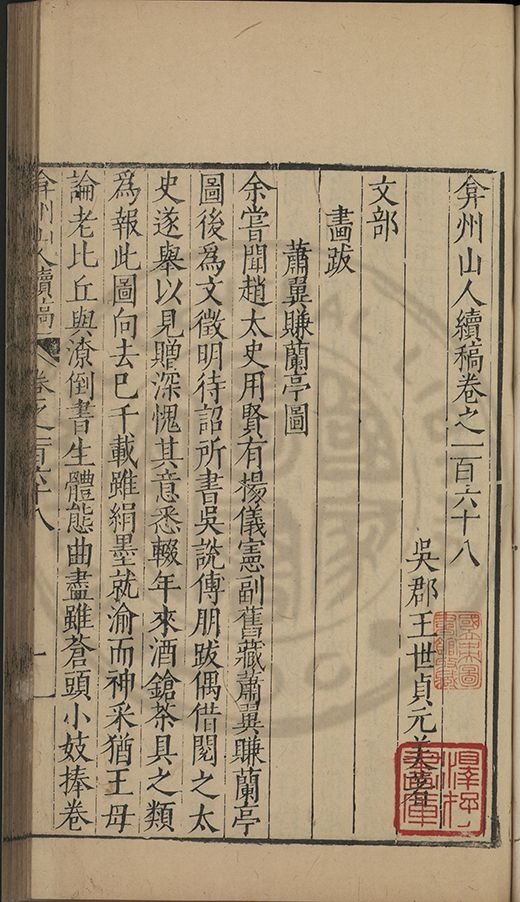 弇州山人續稿卷之一百六十八
吳郡王世貞元美著
文部
畫跋
蕭翼賺蘭亭圖
余嘗聞趙太史用賢有楊儀憲副舊藏蕭翼賺蘭亭
圖後爲文徵明待詔所書吳說傳朋跋偶借閱之太
史遂舉以見贈深愧其意悉輟年來酒鎗茶具之類
爲報此圖向去已千載雖絹墨就渝而神采猶王母
論老比丘與潦倒書生體態曲盡雖蒼頭小妓捧卷
弇州山人續稿 卷之一百六十八 一